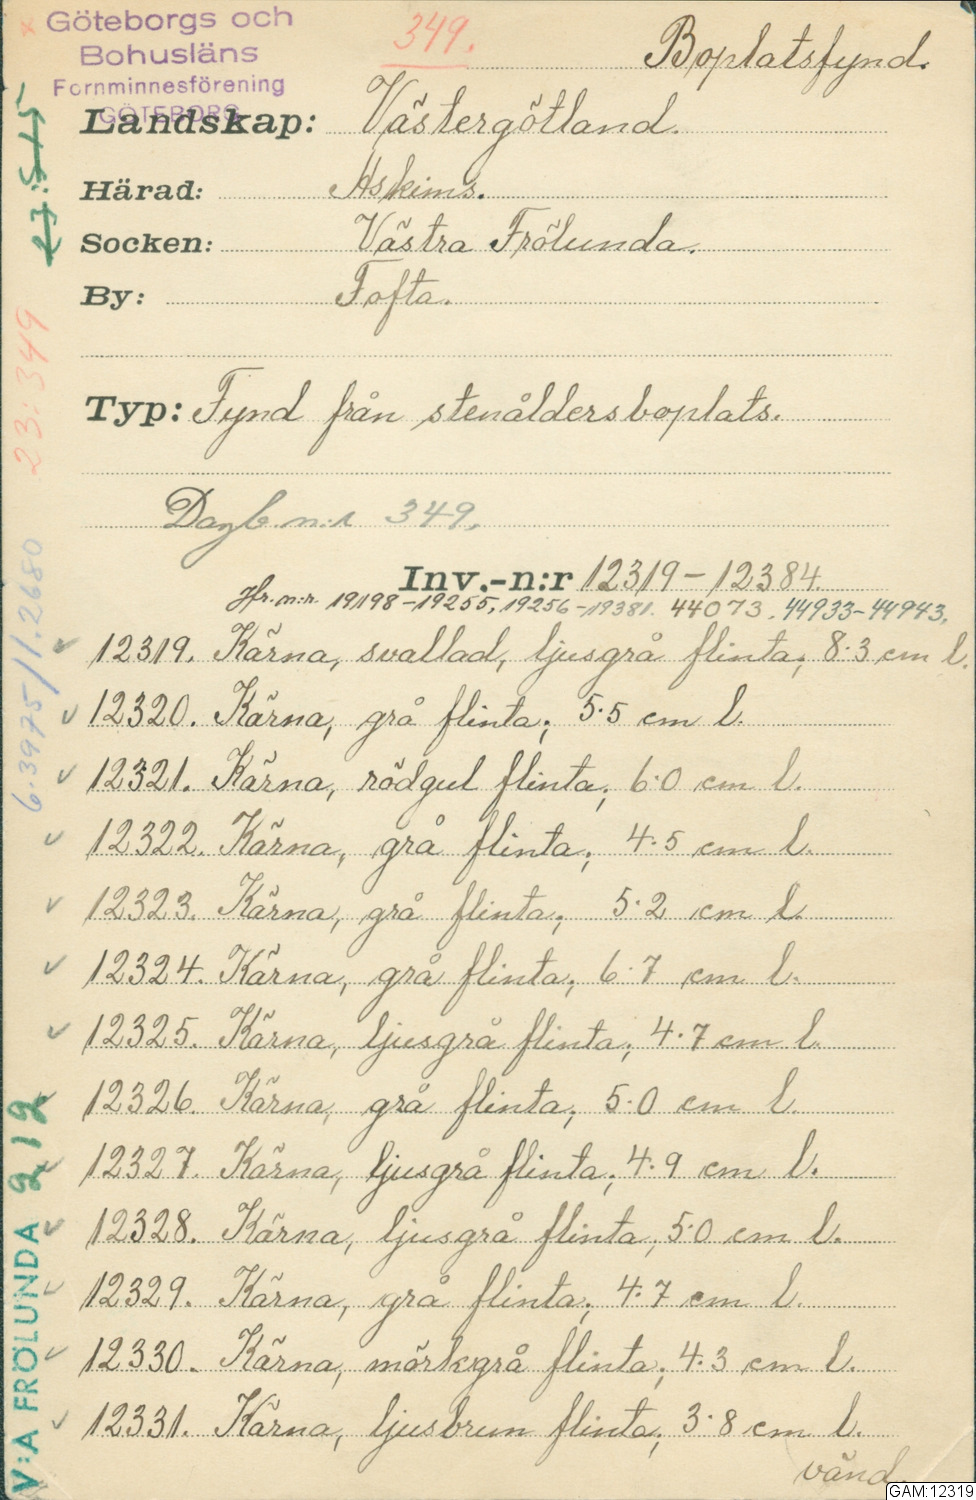 Göteborgs och
Bohusläns
Fornminnesförening
GÖTEBORG
349.
Boplatsfynd.
Landskap: Västergötland.
Härad: Askims.
Socken: Västra Frölunda.
By: Tofta.
Typ: Fynd från stenåldersboplats.
Dagb. n:r 349.
Inv.-n:r 12319-12384.
Hr. n:r. 19198-19255, 19256-19381. 44073. 44933-44943.
12319. Kärna, svallad, ljusgrå flinta; 8.3 cm l.
12320. Kärna, grå flinta; 5.5 cm l.
12321. Kärna, rödgul flinta; 6.0 cm l.
12322. Kärna, grå flinta; 4.5 cm l.
12323. Kärna, grå flinta; 5.2 cm l.
12324. Kärna, grå flinta; 6.7 cm l.
12325. Kärna, ljusgrå flinta; 4.7 cm l.
12326. Kärna, grå flinta; 5.0 cm l.
12327. Kärna, ljusgrå flinta; 4.9 cm l.
12328. Kärna, ljusgrå flinta; 5.0 cm l.
12329. Kärna, grå flinta; 4.7 cm l.
12330. Kärna, mörkgrå flinta; 4.3 cm l.
12331. Kärna, ljusbrun flinta; 3.8 cm l.
vänd.
23:349
6.3975/1.2680
V:A FRÖLUNDA
GAM:12319